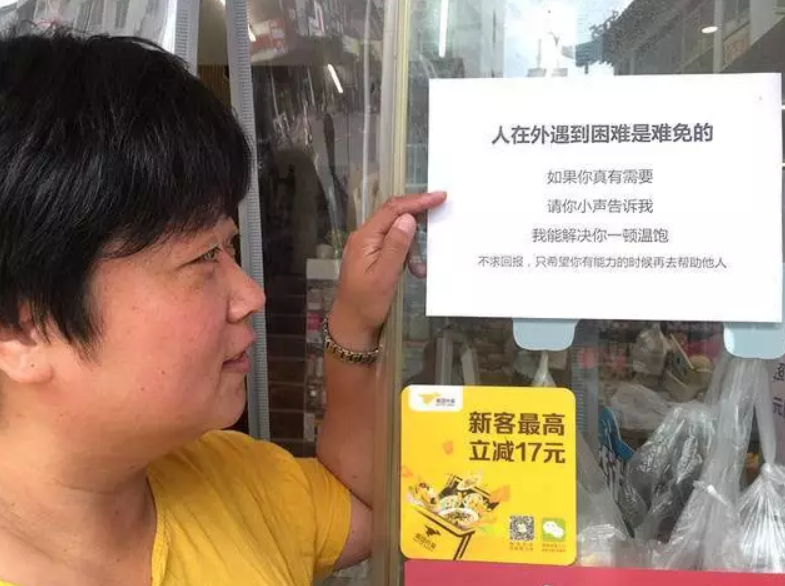 人在外遇到困难是难免的
如果你真有需要
请你小声告诉我
我能解决你一顿温饱
不求回报,只希望你有能力的时候再去帮助他人
美团外卖
新客最高
立减17元
美团外卖
元